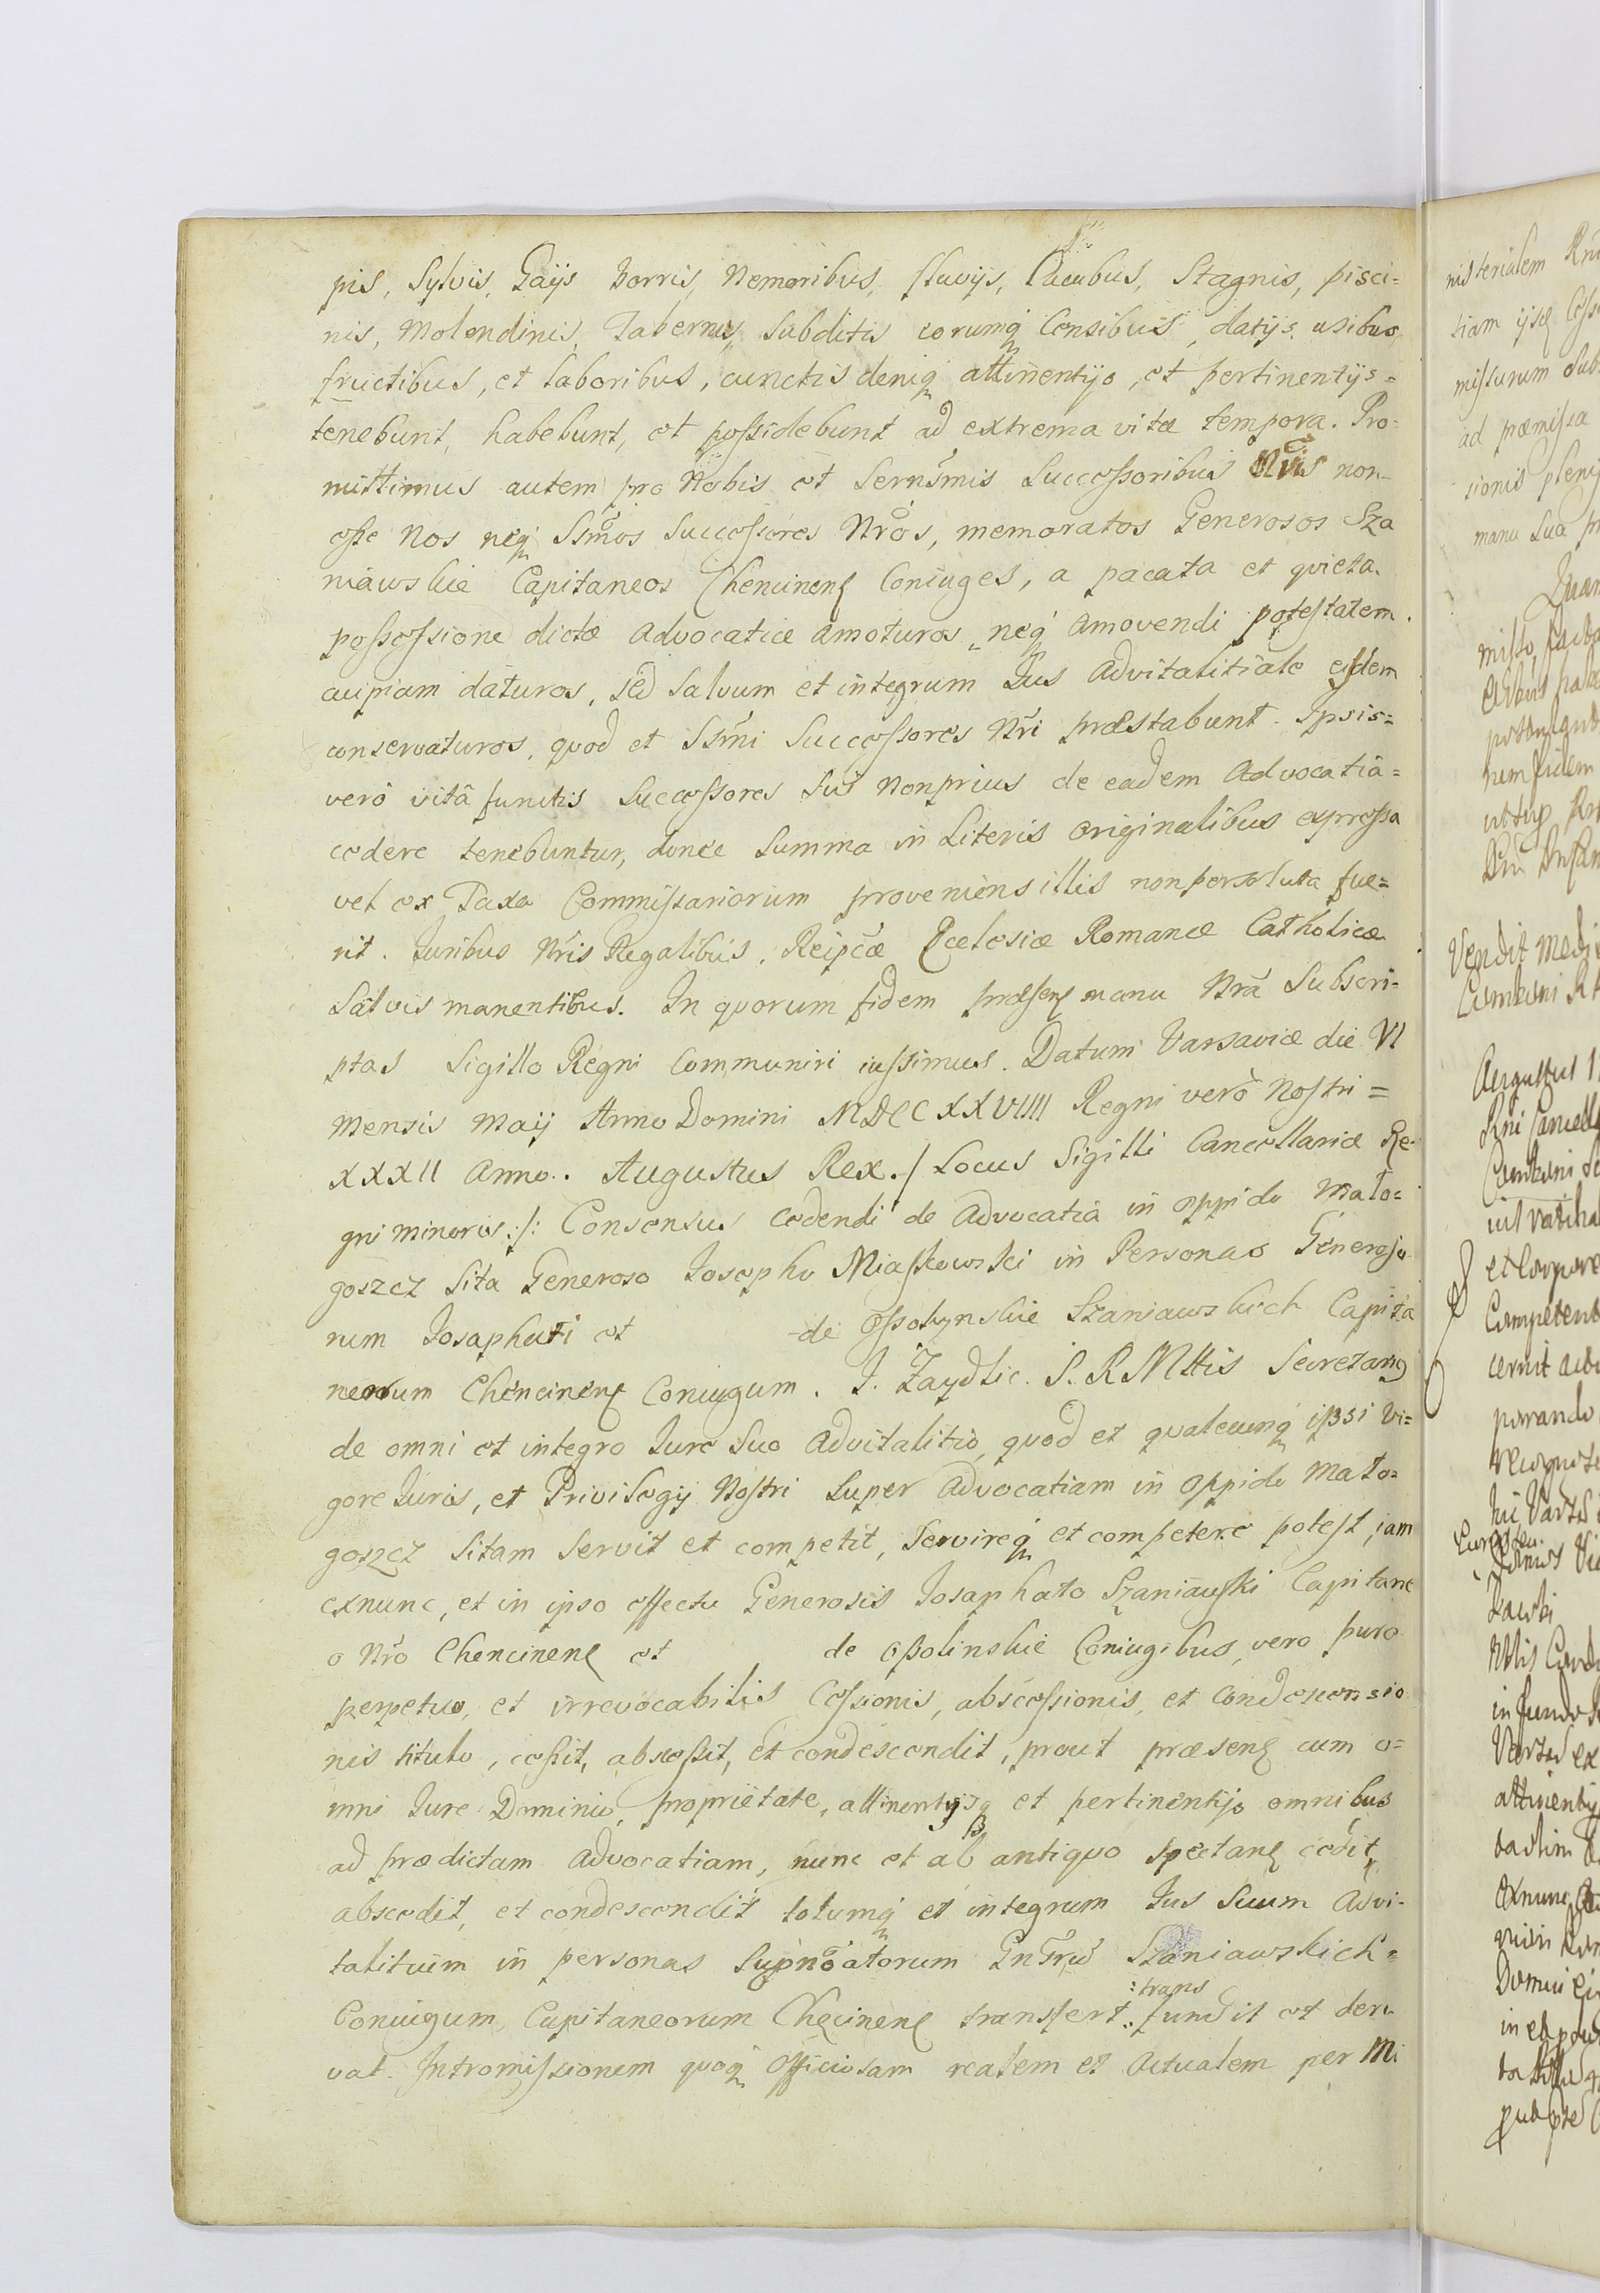 pis, Sylvis, Gaijs Borris, Nemoribus, fluvijs, lacubus, Stagnis, pisci=
nis, Molendinis, Tabernis, Subditis eorumq Censibus, datijs, usibus
fructibus, et laboribus, cunctis deniq attinentijs, et pertinentijs=
tenebunt, habebunt, et possidebunt ad extrema vitæ tempora. Pro=
mittimus autem pro Nobis et Sernsmis Successoribus Nris non
esse Nos neq Ssmos Successores Nros, memoratos Generosos Sza
niawskie Capitaneos Chencinens Coniuges, a pacata et quieta
possessione dictæ Advocatiæ amoturos, neq amovendi potestatem
cuipiam daturos, sed salvum et integrum Jus Advitalitiale eisdem
conservaturos, quod et Ssmi Successores Nri præstabunt. Ipsis=
verò vitâ functis Successores sui non prius de eadem Advocatiâ=
cedere tenebuntur, donec Summa in Literis originalibus expressa
vel ex Taxa Commissariorum proveniens illis non persoluta fue=
rit. Juribus Nris Regalibus, Reipcæ Ecclesiæ Romanæ Catholicæ
Salvis manentibus. In quorum fidem præsens manu Nrâ Subscri=
ptas Sigillo Regni Communiri iussimus. Datum Varsaviæ die VI
Mensis Maij Anno Domini MDCCXXVIIII Regni verò Nostri=
XXXII Anno. Augustus Rex./ Locus Sigilli Cancellariæ Re
gni Minoris :/: Consensus Cedendi de Advocatia in Oppido Mało=
goszcz Sita Generoso Josepho Miaskowski in Personas Generoso
rum Josaphati et de Ossolynskie Szaniawskich Capita
neorum Chencinens Coniugum. J. Zaydlic. S. R Mttis Secretarius
de omni et integro Jure Suo Advitalitio, quod et qualecunq ipsi Vi=
gore Juris, et Privilegij Nostri Super Advocatiam in oppido Mało=
goszcz Sitam Servit et competit, Servireq et competere potest, jam
exnunc, et in ipso effectu Generosis Josaphato Szaniawski Capitane
o Nro Chencinens et de Opolinskie Coniugibus, vero puro
perpetuo, et irrevocabilis Cessionis, abscessionis, et Condescensio
nis titulo, cessit, abscessit, et condescendit, prout præsens cum o=
mni Jure Dominio, proprietate, attinentijsq et pertinentijs omnibus
ad prædictam Advocatiam, nunc et ab antiquo Spectans cedit,
abscedit, et condescendit totumq et integrum Jus Suum Advi-
talitium in personas Supnoatorum Gnsrum Szaniawskich=
Coniugum, Capitaneorum Checinens transfert, :trans
fundit et deri
vat. Intromissionem quoq Officiosam realem et Actualem per Mi
nisterialem
tiam
missurum
ad præmissa
sionis
manu sua
Quam
misso, facta
Vendit
Augustus
et Corpore
Competent
cernit
parando
in fundo
attinentij
exnunc